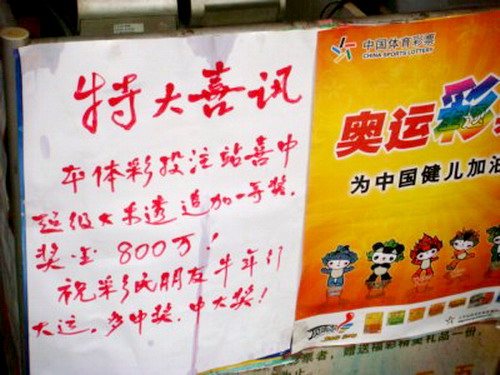 特大喜讯
本体彩投注站喜中
超级大乐透追加一等奖，
奖金800万！
祝彩民朋友牛年行
大运，多中奖，中大奖！
中国体育彩票
CHINA SPORTS LOTTERY
奥运彩
为中国健儿加油
顶呱刮
票者，赠送福彩精美礼品一份